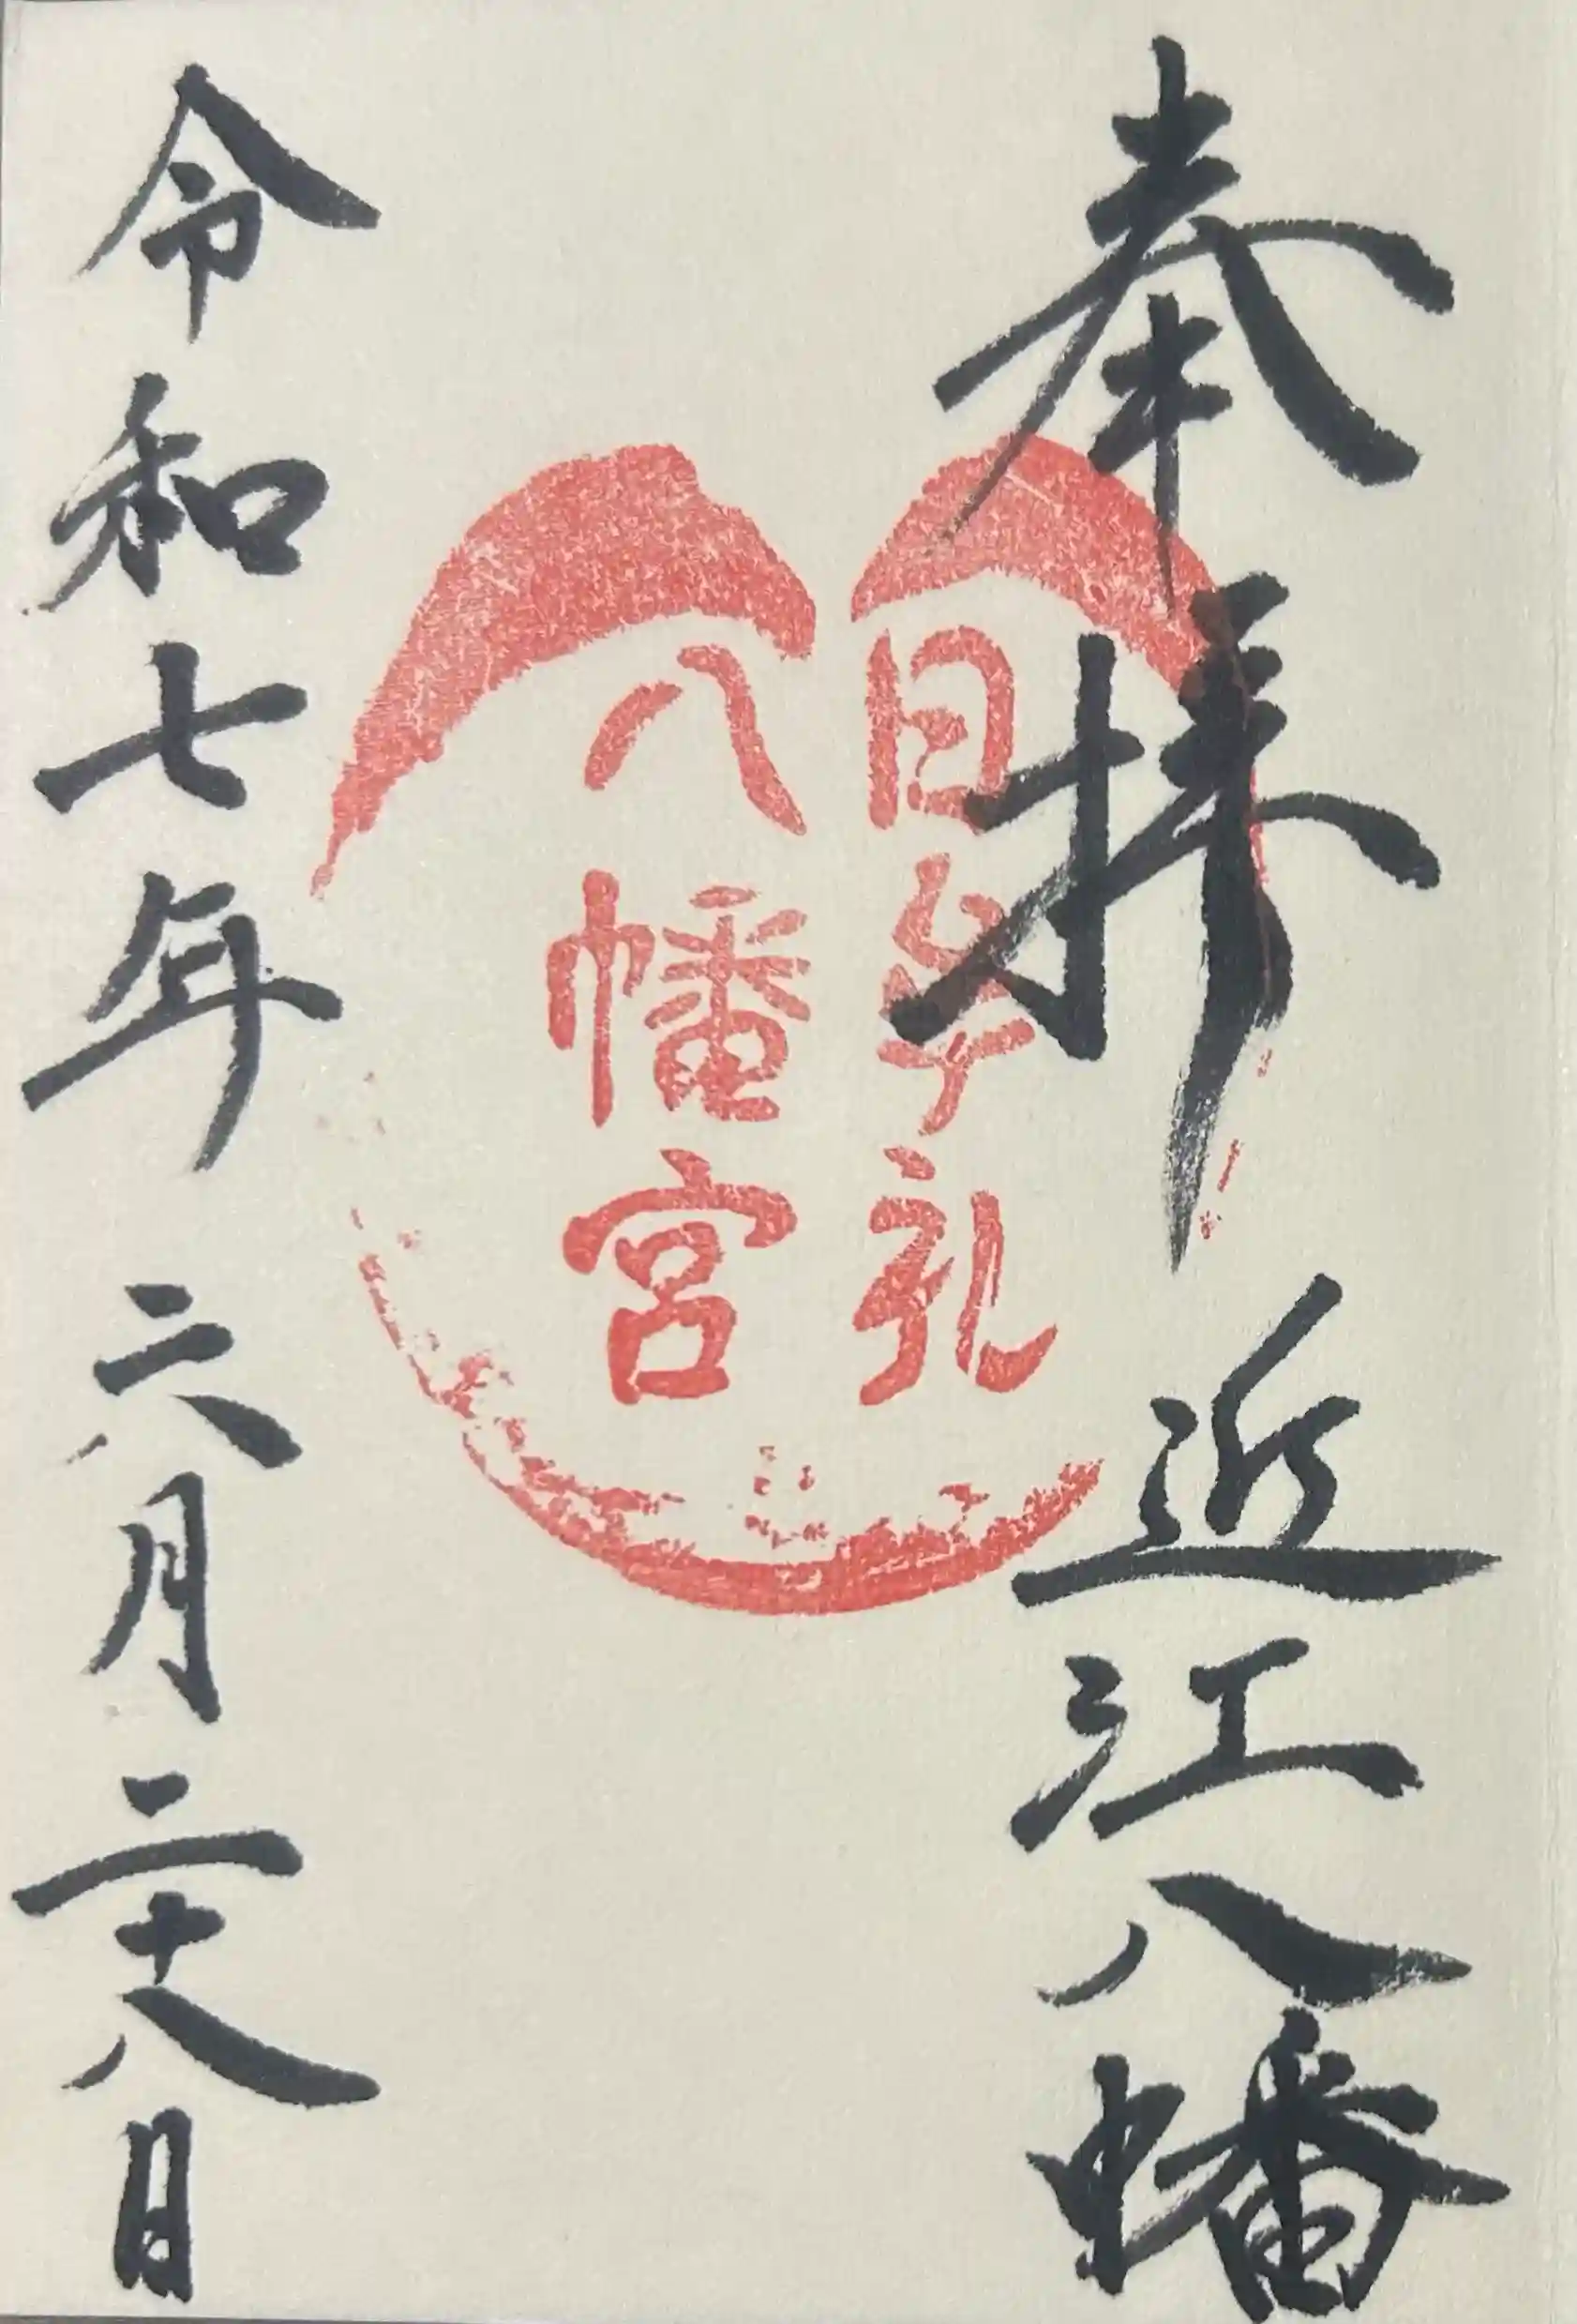 奉拝 近江八幡
日牟礼
八幡宮
令和七年 六月二十八日